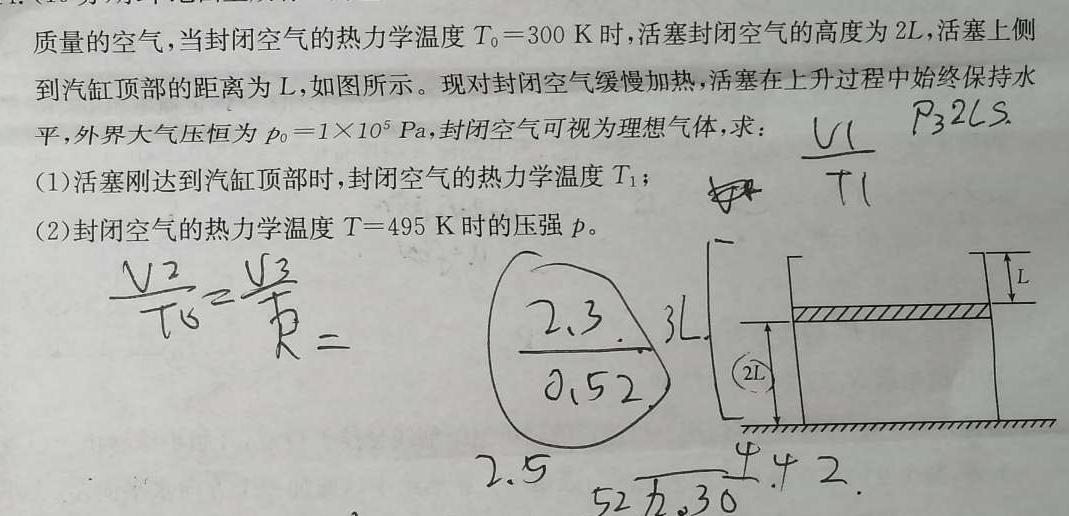 质量的空气,当封闭空气的热力学温度 T₀=300 K 时,活塞封闭空气的高度为 2L,活塞上侧
到汽缸顶部的距离为 L,如图所示。现对封闭空气缓慢加热,活塞在上升过程中始终保持水
平,外界大气压恒为 p₀=1×10⁵ Pa,封闭空气可视为理想气体,求:
P₃2LS.
V1
T1
(1)活塞刚达到汽缸顶部时,封闭空气的热力学温度 T₁;
(2)封闭空气的热力学温度 T=495 K 时的压强 p。
V2 = V3
L
2.3.
3L
0.52
2L
2.5
4.42.
52